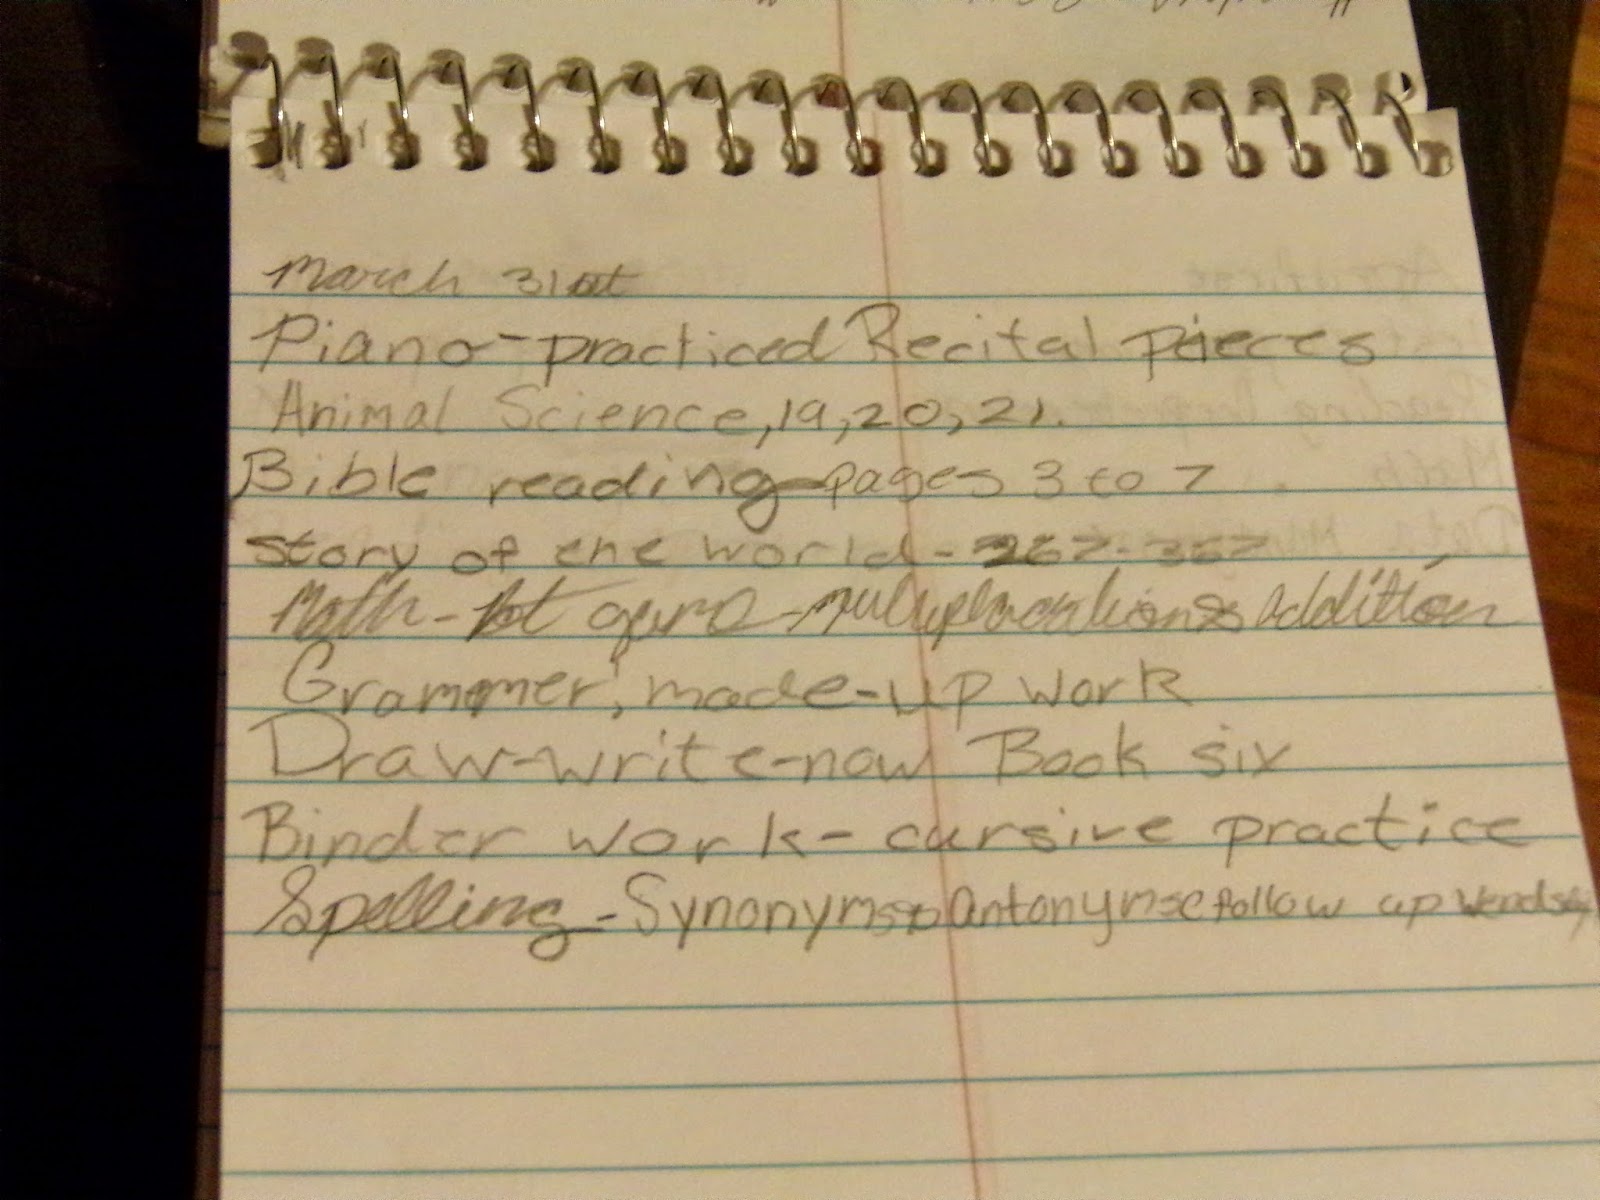 March 31st
Piano-practiced Recital peieces
Animal Science, 19, 20, 21.
Bible reading-pages 3 to 7
story of the world - 267-357
Math - - multiplacations & addition
Grammer, made-up work
Draw-write-now Book six
Binder work- cursive practice
Spelling - Synonyms & antonyms follow up